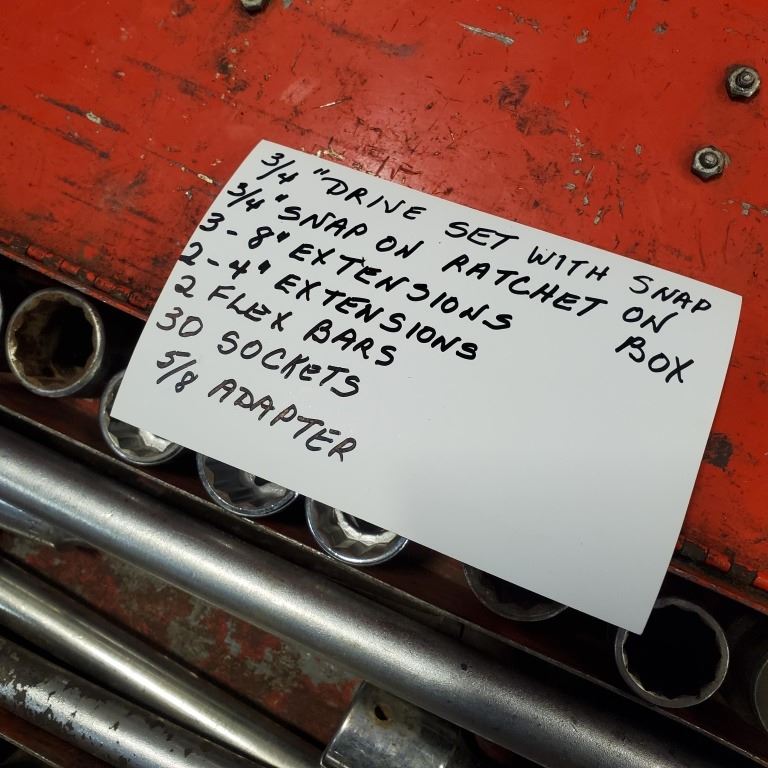 3/4 "DRIVE SET WITH SNAP ON BOX
3/4" SNAP ON RATCHET
3-8" EXTENSIONS
2-4" EXTENSIONS
2 FLEX BARS
30 SOCKETS
5/8 ADAPTER